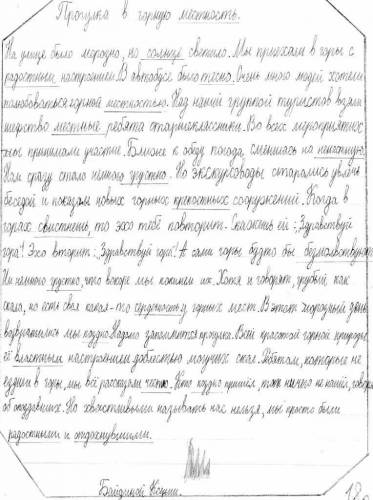 Прогулка в горную местность.
На улице было морозно, но солнце светило. Мы приехали в горы с
радостным настроением. В автобусе было тесно. Очень много людей хотели
полюбоваться горной местностью. Над нашей группой туристов взяли
шефство местные ребята старшеклассники. Во всех мероприятиях
мы принимали участие. Ближе к обеду погода сменилась на ненастную.
Нам сразу стало немного грустно. Но экскурсоводы старались увлечь
беседой и показом новых горных крепостных сооружений. Когда в
горах свистнешь, то эхо тебе повторит. Скажешь ей: „Здравствуй
гора"! Эхо вторит: „Здравствуй гора"! А сами горы будто бы безмолвствуют.
Им немного грустно, что вскоре мы покинем их. Хотя и говорят, грубый как
скала, но есть своя какая-то сердечность у горных мест. В этот морозный день
возвратились мы поздно. Надолго запомнится прогулка. Всей красотой горной природы
её властным настроением доблестью могучих скал. Ребятам, которые не
ездили в горы, мы всё рассказали честно. Кто поздно пришёл, тот ничего не нашёл, говорят
об опоздавших. Но хвастливыми называть нас нельзя, мы просто были
радостными и отдохнувшими.